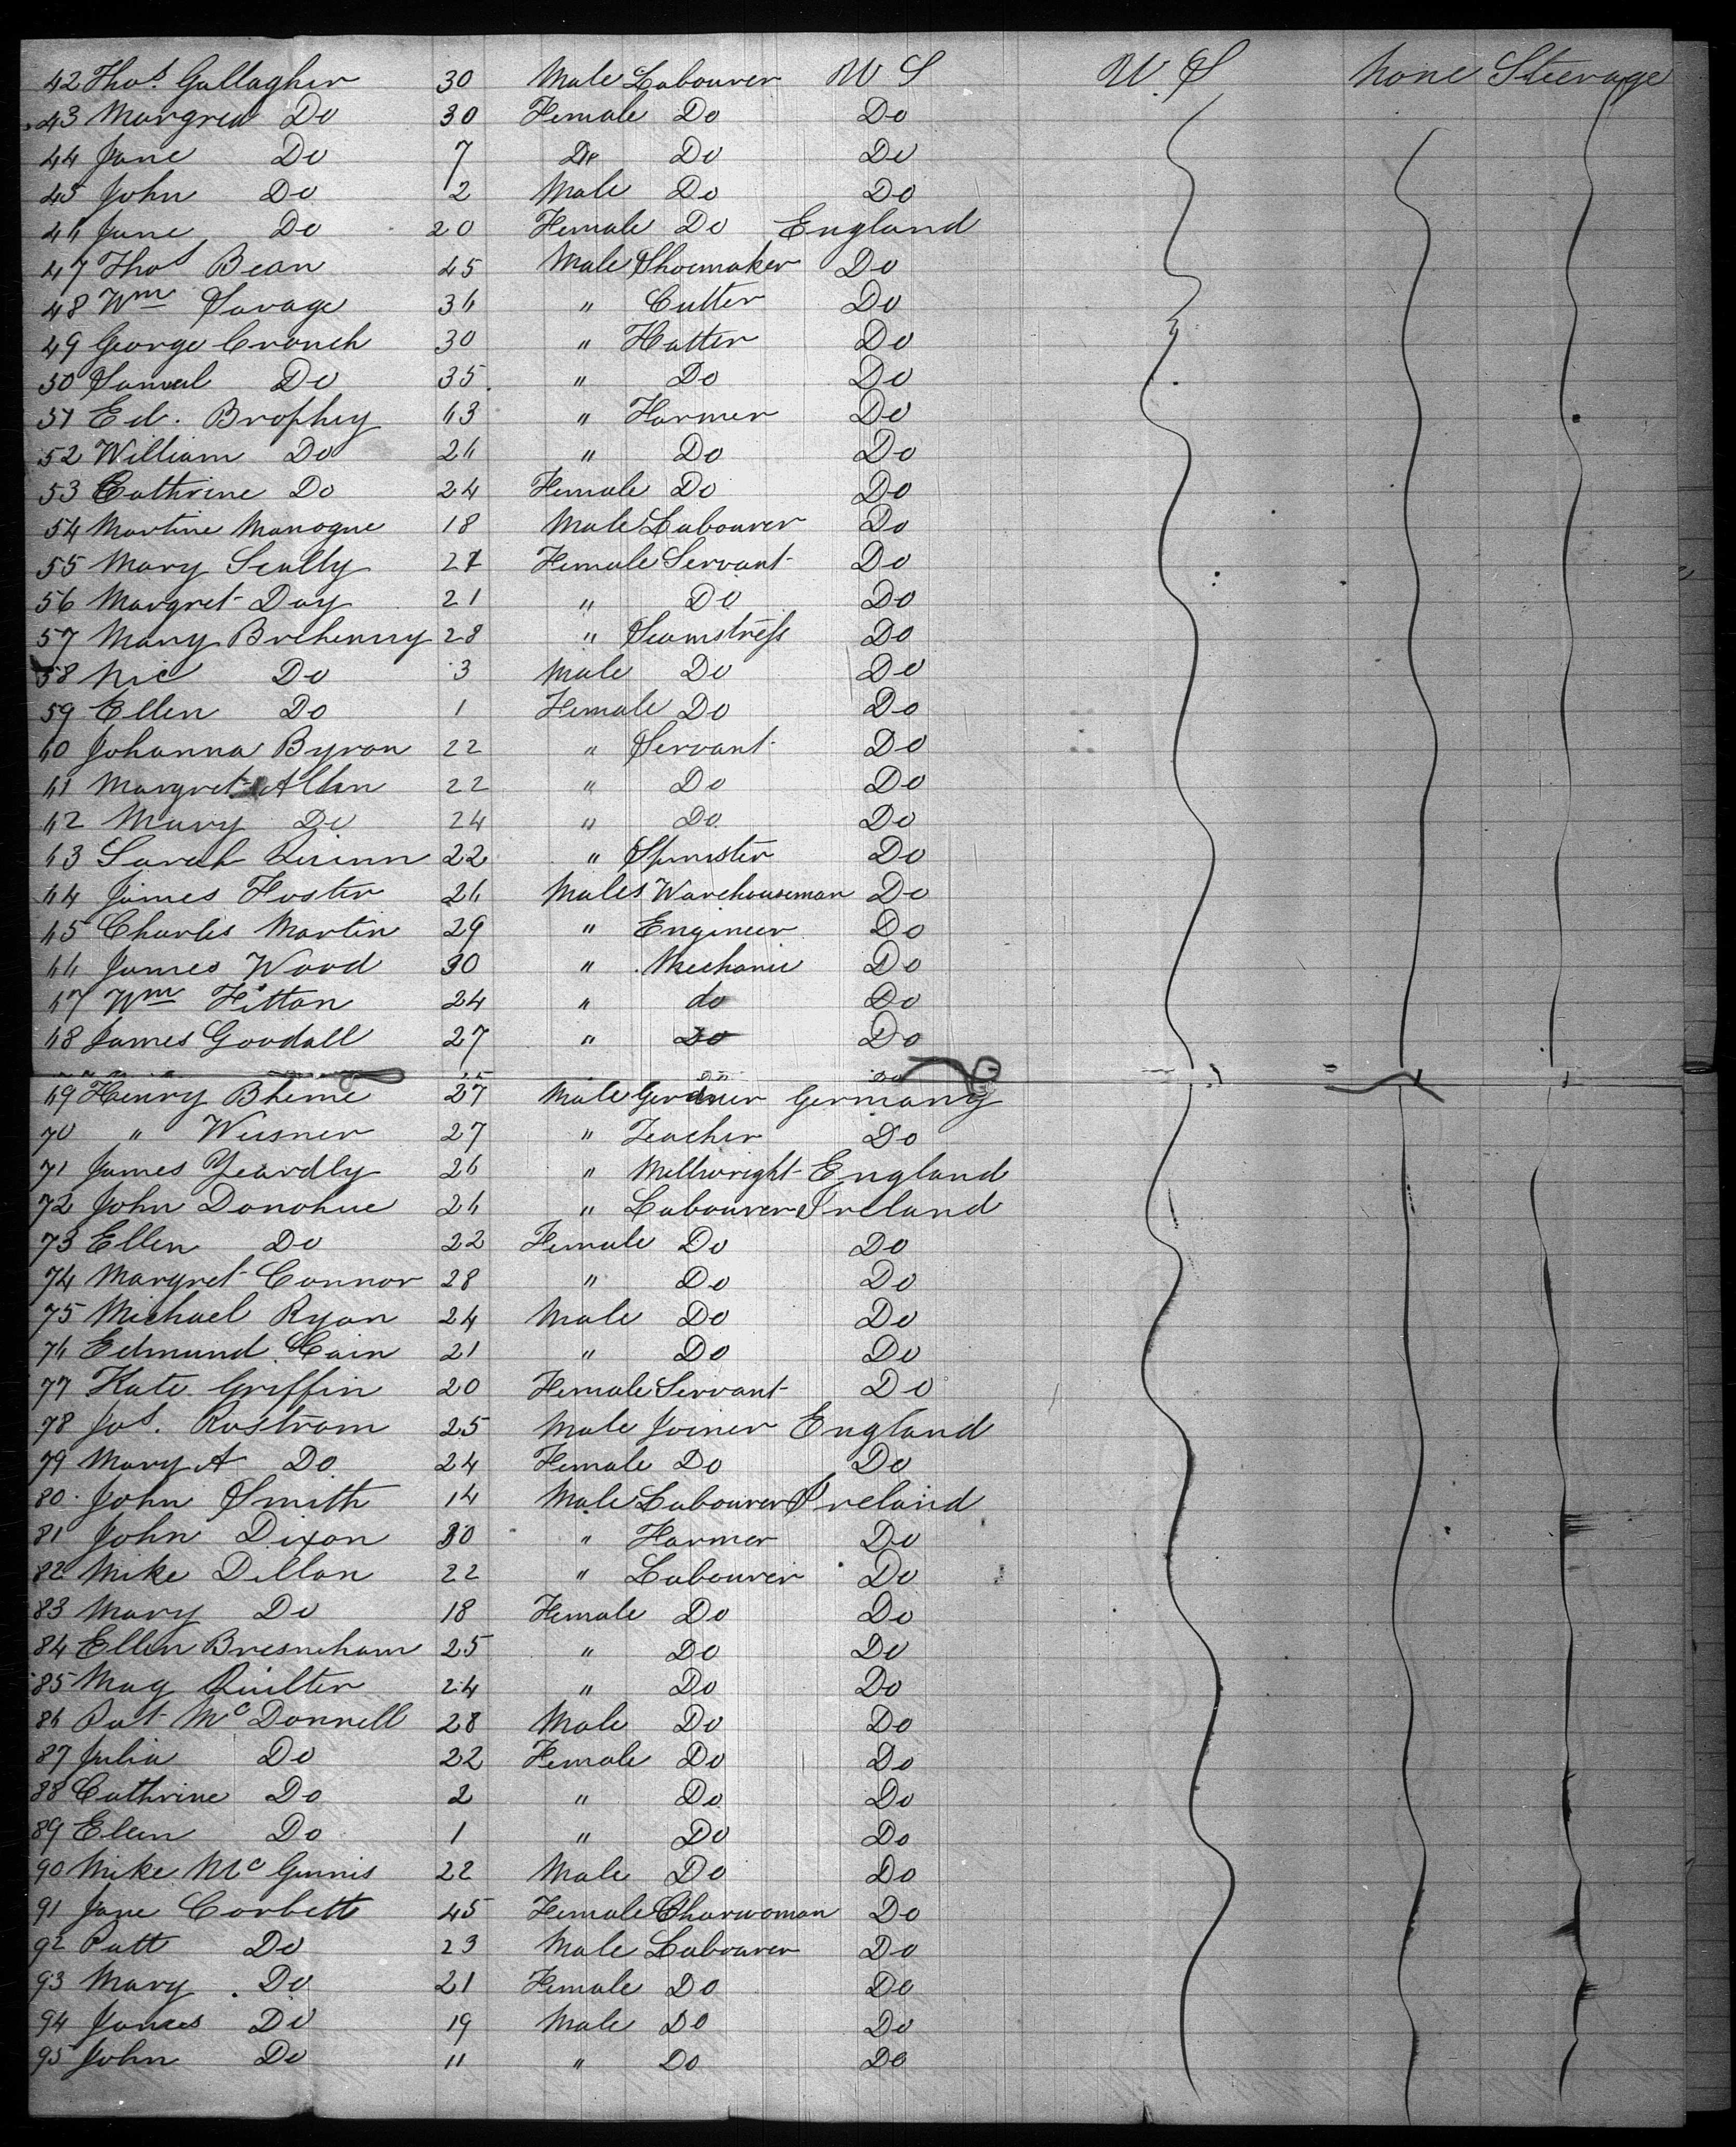 42 Thos. Gallagher 30 Male Labourer U S U. S none Steerage
43 Margret Do 30 Female Do Do
44 Jane Do 7 Do Do Do
45 John Do 2 Male Do Do
46 Jane Do 20 Female Do England
47 Thos Bean 45 Male Shoemaker Do
48 Wm Savage 36 " Cutter Do
49 George Cronch 30 " Hatter Do
50 Samual Do 35 " Do Do
51 Ed. Brophey 63 " Farmer Do
52 William Do 26 " Do Do
53 Cathrine Do 24 Female Do Do
54 Martine Manogue 18 Male Labourer Do
55 Mary Scully 27 Female Servant Do
56 Margret Day 21 " Do Do
57 Mary Brehenny 28 " Seamstress Do
58 Nic Do 3 Male Do Do
59 Ellen Do 1 Female Do Do
60 Johanna Byron 22 " Servant Do
61 Margret Allen 22 " Do Do
62 Mary Do 24 " Do Do
63 Sarah Quinn 22 " Spinster Do
64 James Foster 26 Males Warehouseman Do
65 Charles Martin 29 " Engineer Do
66 James Wood 30 " Mechanic Do
67 Wm Fitton 24 " do Do
68 James Goodall 27 " Do Do
69 Henry Bheme 27 Male Gerdner Germany
70 " Weisner 27 " Teacher Do
71 James Yeardly 26 " Millwright England
72 John Donohue 26 " Labourer Ireland
73 Ellen Do 22 Female Do Do
74 Margret Connor 28 " Do Do
75 Michael Ryan 24 Male Do Do
76 Edmund Cain 21 " Do Do
77 Kate Griffin 20 Female Servant Do
78 Jos. Rostrom 25 Male Joiner England
79 Mary A Do 24 Female Do Do
80 John Smith 14 Male Labourer Ireland
81 John Dixon 30 " Farmer Do
82 Mike Dillon 22 " Labourer Do
83 Mary Do 18 Female Do Do
84 Ellen Bresneham 25 " Do Do
85 Mag Quilter 24 " Do Do
86 Pat McDonnell 28 Male Do Do
87 Julia Do 22 Female Do Do
88 Cathrine Do 2 " Do Do
89 Elen Do 1 " Do Do
90 Mike McGinnis 22 Male Do Do
91 Jane Corbett 45 Female Charwoman Do
92 Patt Do 23 Male Labourer Do
93 Mary Do 21 Female Do Do
94 James Do 19 Male Do Do
95 John Do 11 " Do Do